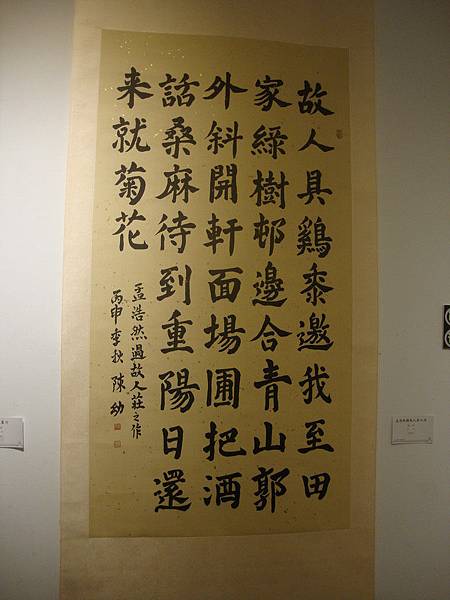 故人具鷄黍邀我至田
家綠樹邨邊合青山郭
外斜開軒面場圃把酒
話桑麻待到重陽日還
来就菊花
孟浩然過故人莊之作
丙申季秋陳幼